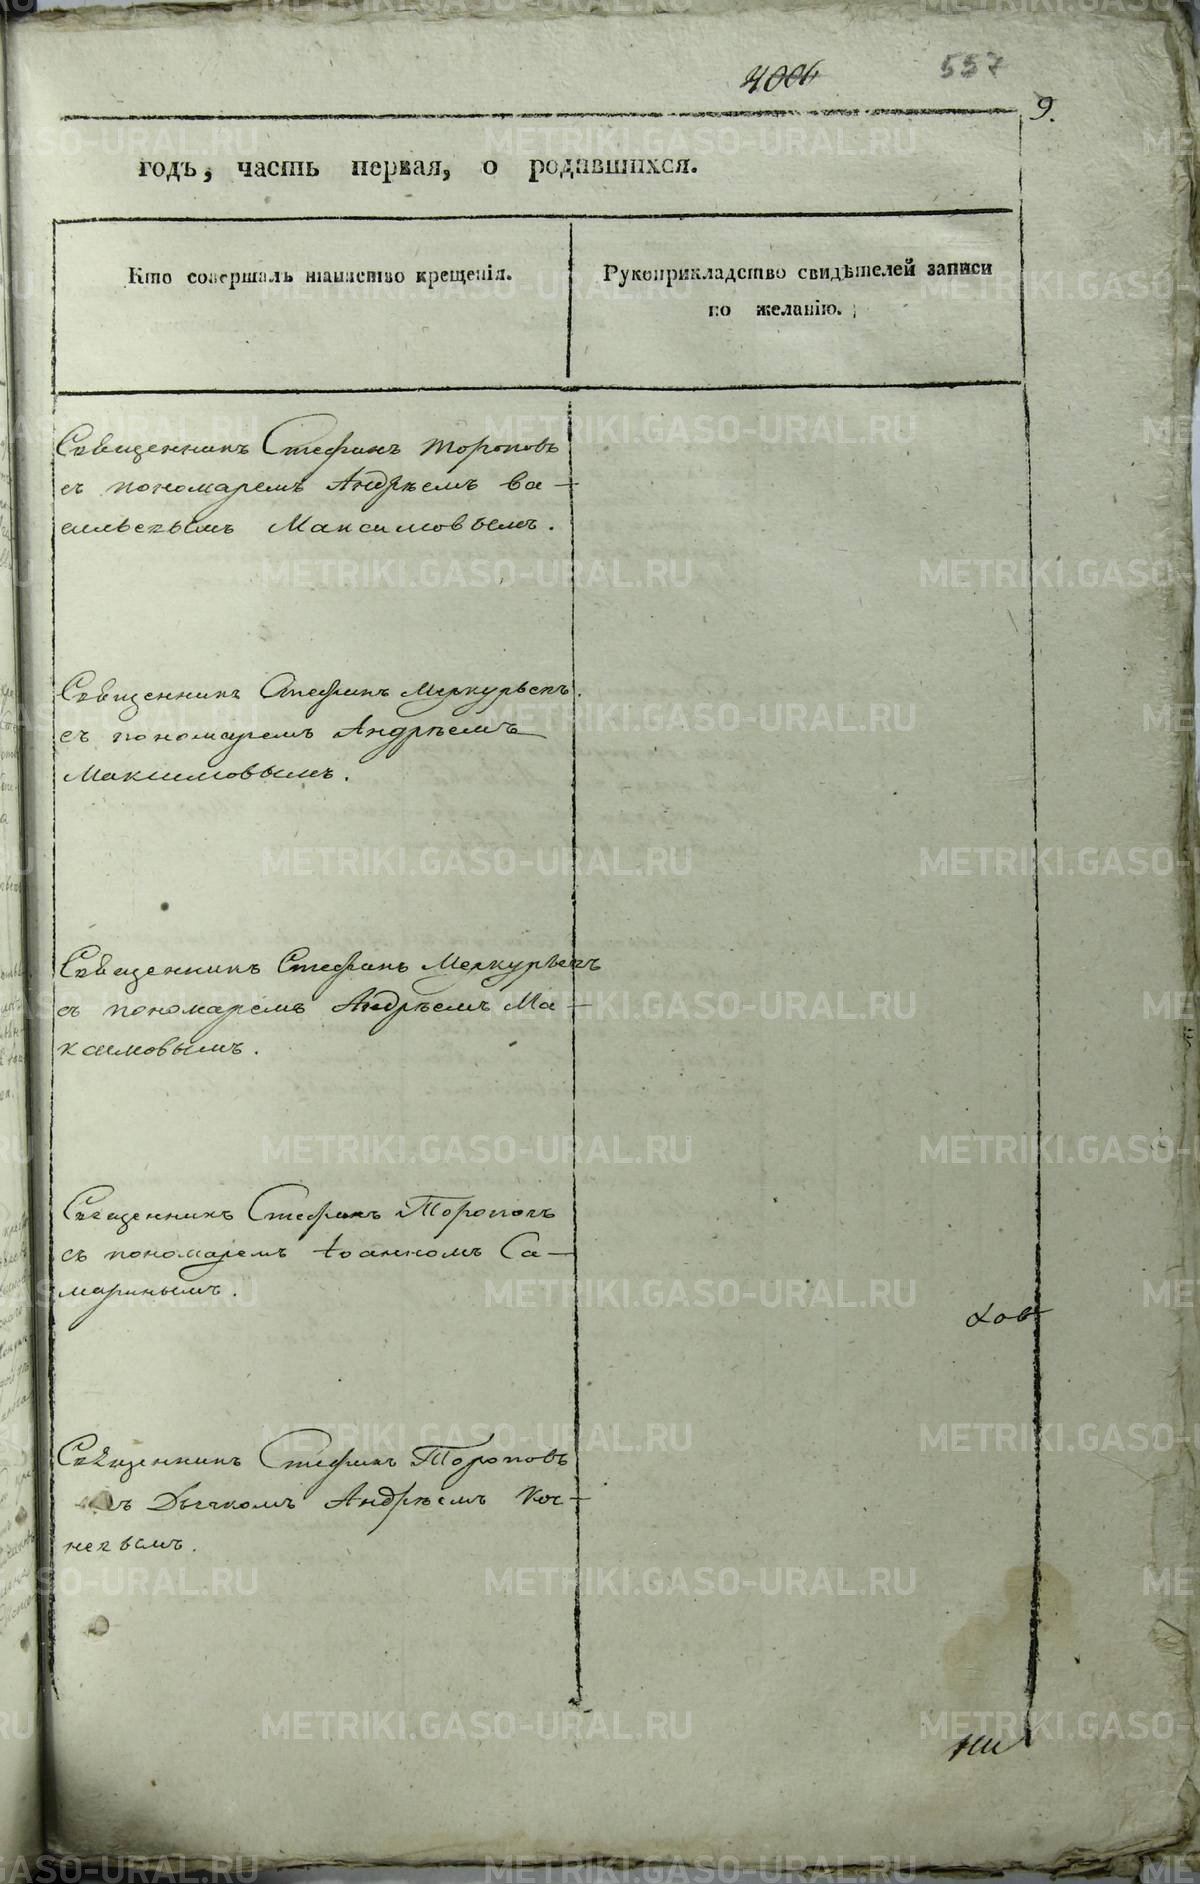 557
9.
годъ, часть первая, о родившихся.
Кто совершалъ таинство крещенія.
Рукоприкладство свидѣтелей записи
по желанію.
Священникъ Стефанъ Тороповъ
съ пономаремъ Андрѣемъ Ва-
сильевымъ Максимовымъ.
Священникъ Стефанъ Меркурьевъ.
съ пономаремъ Андрѣемъ
Максимовымъ.
Священникъ Стефанъ Меркурьевъ
съ пономаремъ Андрѣемъ Ма-
ксимовымъ.
Священникъ Стефанъ Тороповъ
съ пономаремъ Іоанномъ Са-
маринымъ.
ков
Священникъ Стефанъ Тороповъ
съ Дьячкомъ Андрѣемъ Кос-
невымъ.
ни
METRIKI.GASO-URAL.RU